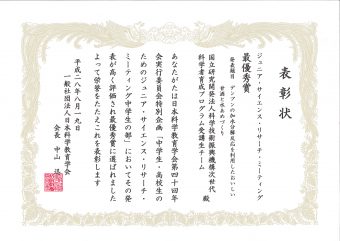 表彰状
ジュニア・サイエンス・リサーチ・ミーティング
最優秀賞
発表題目 デンプンの加水分解反応を利用したおいしい
甘酒と水あめづくり
国立研究開発法人科学技術振興機構次世代
科学者育成プログラム受講生チーム 殿
あなたがたは日本科学教育学会第四十回年
会実行委員会特別企画「中学生・高校生の
ためのジュニア・サイエンス・リサーチ・
ミーティング中学生の部」においてその発
表が高く評価され最優秀賞に選ばれました
よって栄誉をたたえこれを表彰します
平成二八年八月一九日
一般社団法人日本科学教育学会
会長 中山 迅